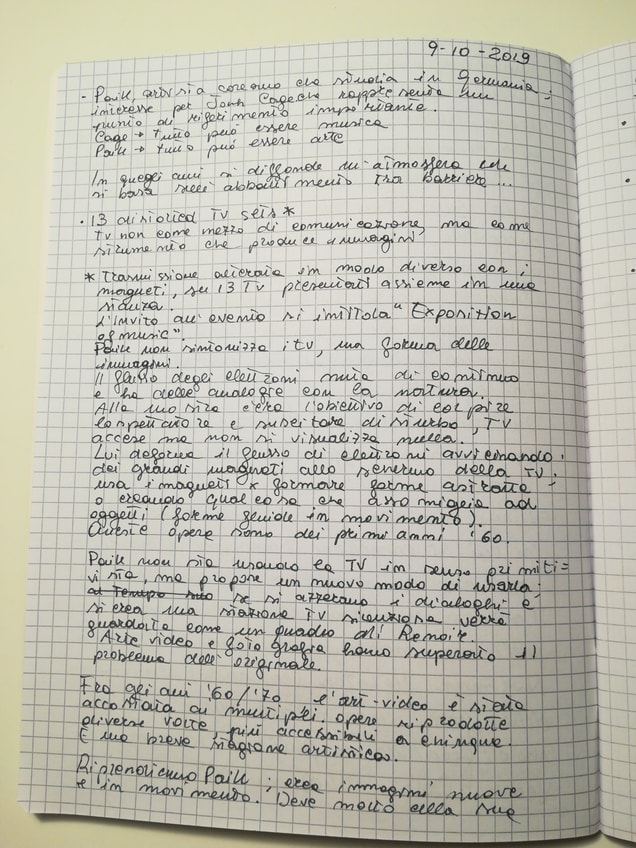 9-10-2019
- Paik, artista coreano che studia in Germania;
interesse per John Cage che rappresenta un
punto di riferimento importante.
Cage → tutto può essere musica
Paik → tutto può essere arte
In quegli anni si diffonde un'atmosfera che
si basa sull'abbattimento tra barriere...
• 13 distorted TV sets *
TV non come mezzo di comunicazione, ma come
strumento che produce immagini
* Trasmissione alterata in modo diverso con i
magneti, su 13 TV presentati assieme in una
stanza.
L'invito all'evento si intitola "Exposition
of music".
Paik non sintonizza i tv, ma forma delle
immagini.
Il flusso degli elettroni muta di continuo
e ha delle analogie con la natura.
Alla mostra c'era l'obiettivo di colpire
lo spettatore e suscitare disturbo, TV
accese ma non si visualizza nulla.
Lui deforma il flusso di elettroni avvicinando
dei grandi magneti allo schermo della TV.
usa i magneti x formare forme astratte
o creando qualcosa che assomiglia ad
oggetti (forme fluide in movimento).
Queste opere sono dei primi anni '60.
Paik non sta usando la TV in senso primiti=
vista, ma propone un nuovo modo di usarla;
se si azzerano i dialoghi e
si crea una stazione TV silenziosa verrà
guardata come un quadro di Renoir.
Arte video e fotografia hanno superato il
problema dell'originale.
Fra gli anni '60/'70 l'art-video è stata
accostata ai multipli. opere riprodotte
diverse volte, più accessibili a chiunque.
È una breve stagione artistica.
Riprendiamo Paik; crea immagini nuove
e in movimento. Deve molto alla sua